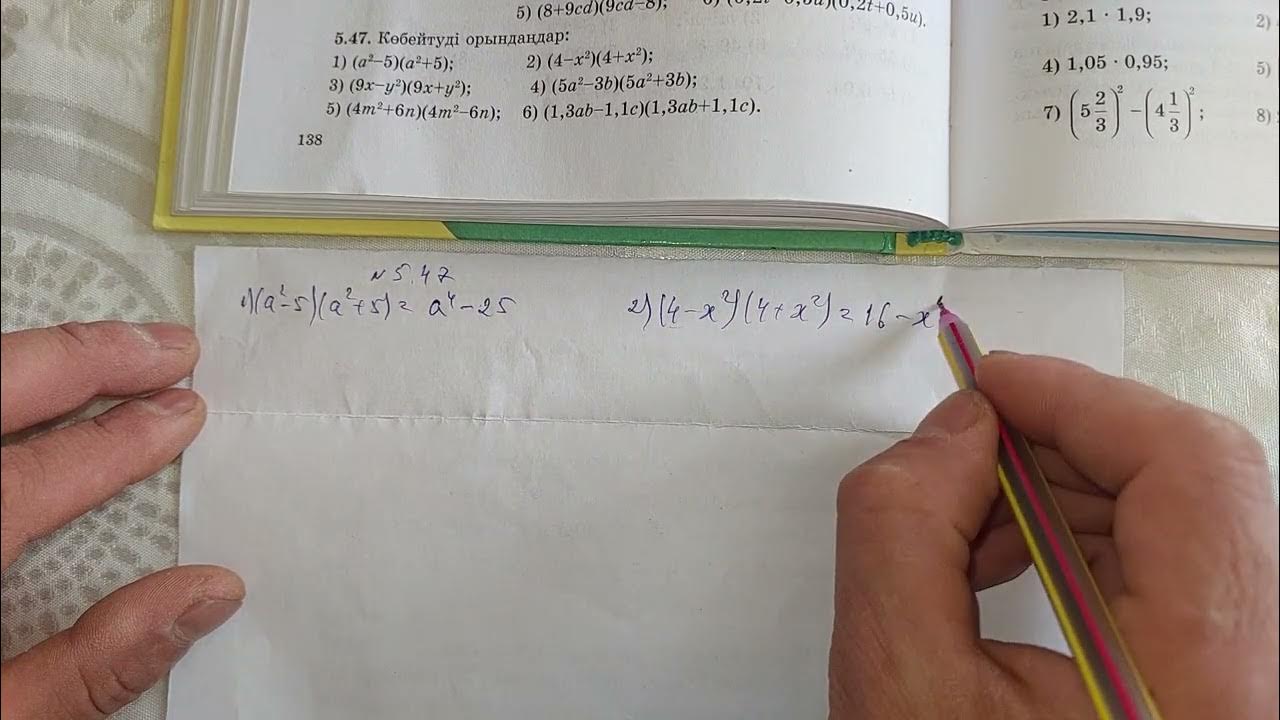 5) (8+9cd)(9cd−8);
5.47. Көбейтуді орындаңдар:
1) (a²−5)(a²+5); 2) (4−x²)(4+x²);
3) (9x−y²)(9x+y²); 4) (5a²−3b)(5a²+3b);
5) (4m²+6n)(4m²−6n); 6) (1,3ab−1,1c)(1,3ab+1,1c).
138
1) 2,1 · 1,9; 2)
4) 1,05 · 0,95; 5)
7) (5 2/3)² − (4 1/3)²; 8)
№5.47
1) (a²−5)(a²+5) = a⁴−25 2) (4−x²)(4+x²) = 16−x